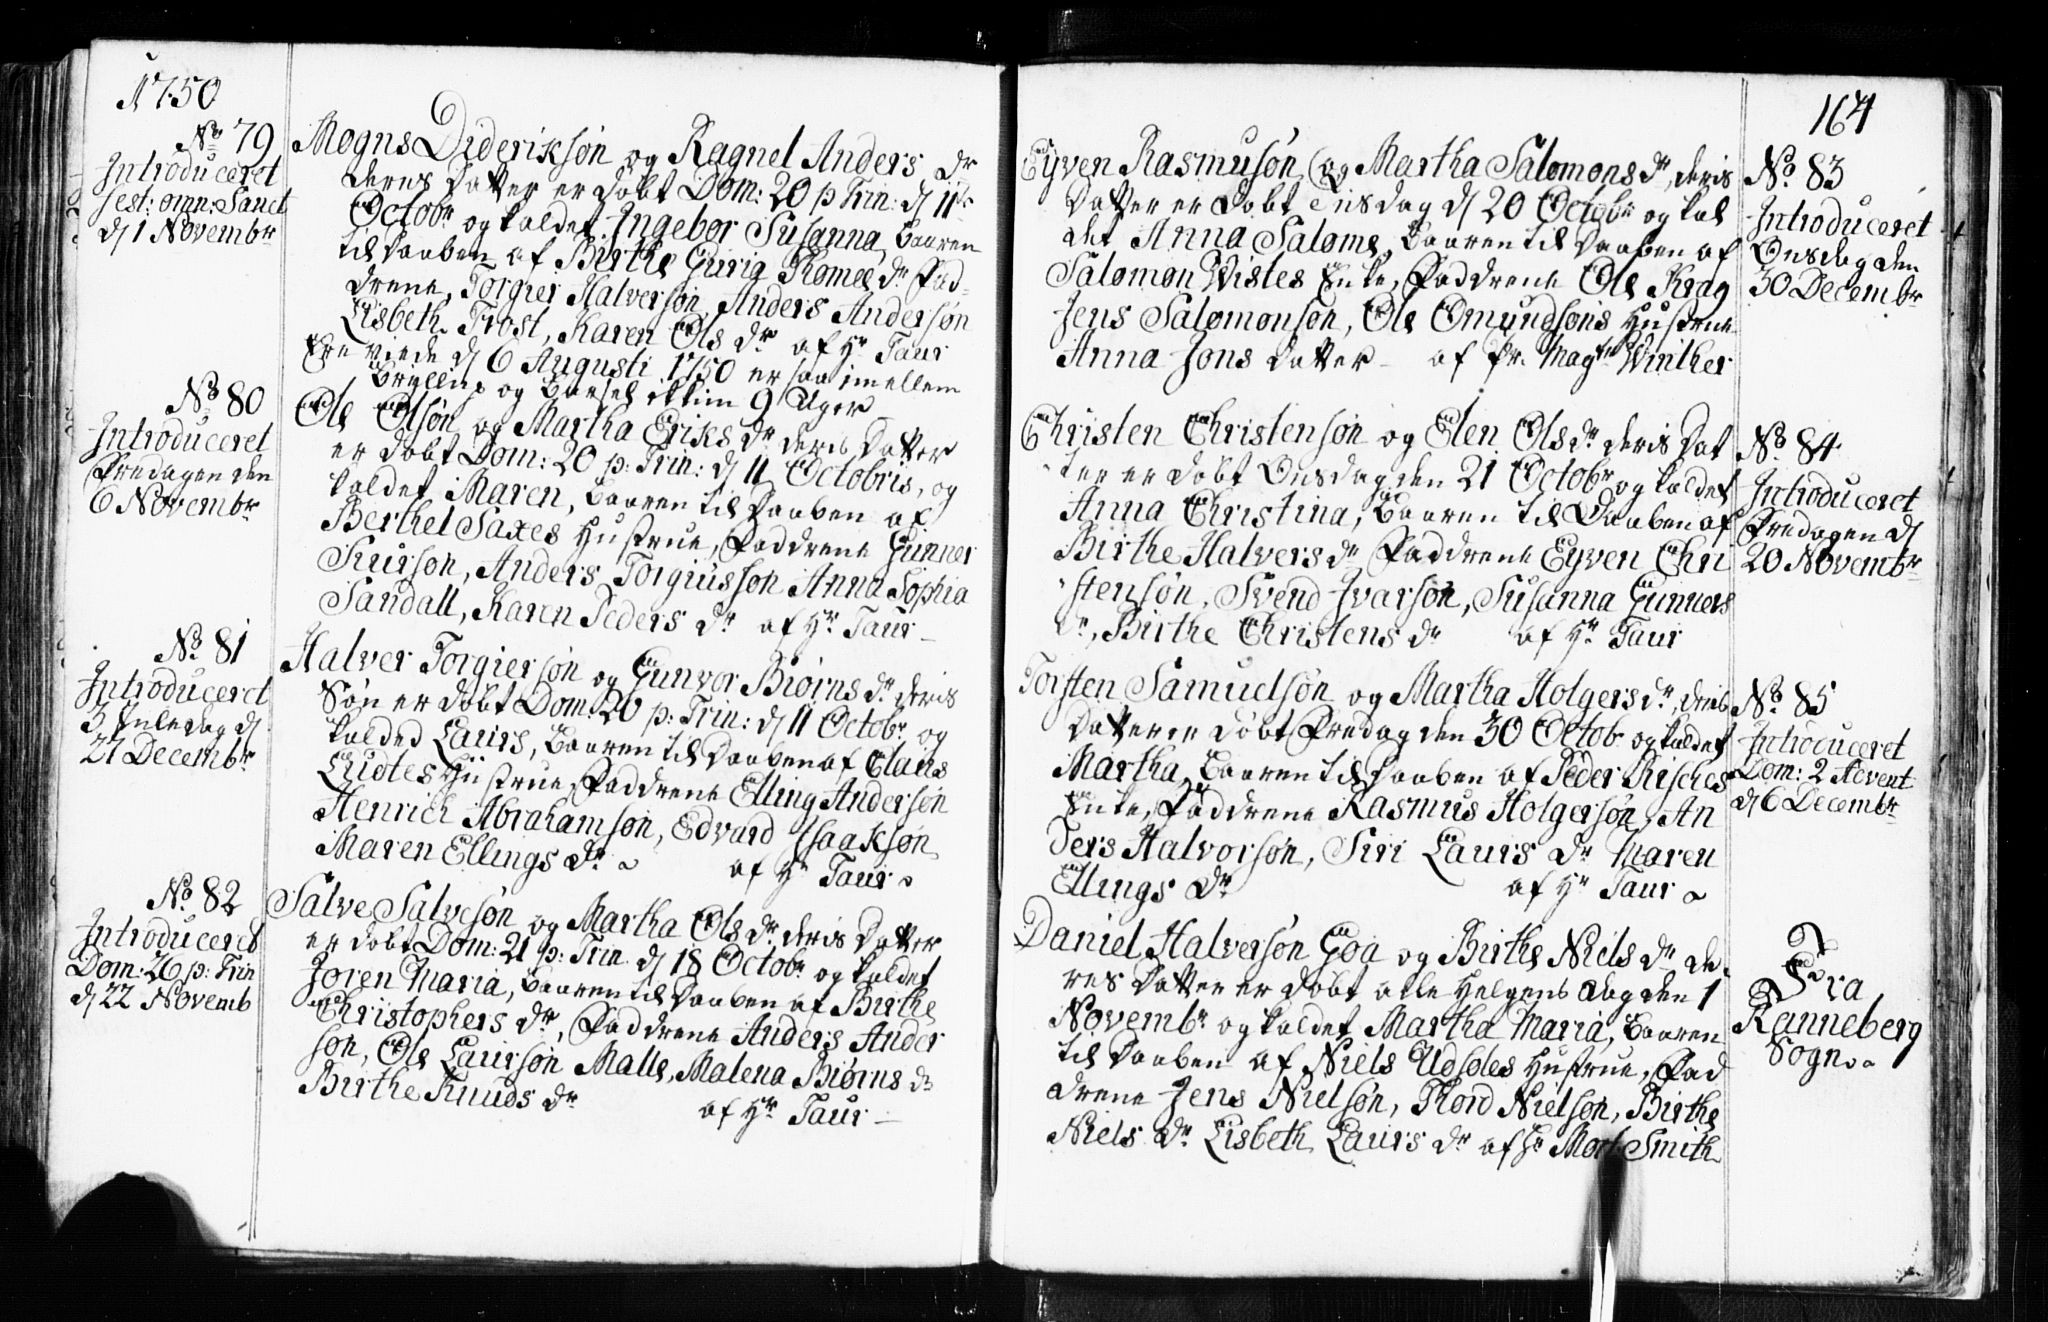 1750
No 79
Introduceret
fest: omn: Sanct
d 1 Novembr
Mogns Dideriksøn og Ragnel Anders dr
deres Datter er døbt Dom: 20 p Trin: d 11te
Octobr og kaldet Ingebor Susanna, baaren
til Daaben af Birthe Guria Romee dr Fad-
drene, Torgier Halversøn, Anders Andersøn
Lisbeth Trost, Karen Ols dr af Hr Taur
Ere viede d 6 Augusti 1750 er saa imellem
Bryllup og Barsel ikkun 9 Uger
No 80
Introduceret
Fredagen den
6 Novembr
Ole Olsøn og Martha Eriks dr deris Datter
er døbt Dom: 20 p: Trin: d 11 Octobris, og
kaldet Maren, baaren til Daaben af
Berthel Saxes Hustrue, Faddrene Gunner
Siurson, Anders Torgiusson Anna Sophia
Sandall, Karen Peders dr af Hr Taur
No 81
Introduceret
3 Juledag d
27 Decembr
Halver Torgiersøn og Gunvor Biørns dr deris
Søn er døbt Dom: 20 p: Trin: d 11 Octobr og
kalded Laurs, baaren til Daaben af Claus
Ludtes Hustrue, Faddrene Elling Andersøn
Henrich Abrahamsøn, Edvard Isaaksøn
Maren Ellings dr af Hr Taur
No 82
Introduceret
Dom: 26 p: Trin
d 22 Novemb
Salve Salvesøn og Martha Ols dr deris Datter
er døbt Dom: 21 p: Trin d 18 Octobr og kaldet
Joren Maria, baaren til Daaben af Birthe
Christophers dr, Faddrene Anders Ander
søn, Ole Laursøn Malle, Malena Biørns dr
Birthe Knuds dr af Hr Taur
164
Eyven Rasmusøn og Martha Salomons dr, deris
Datter er Døbt Tirsdag d 20 Octobr og kal
det Anna Salome, baaren til Daaben af
Salomon Wistes Enke, Faddrene Ole Krag
Jens Salomonsøn, Ole Omundsøns Hustrue
Anna Jons Datter af Pr. Magr Winther
No 83
Introduceret
Onsdag den
30 Decembr
Christen Christensøn og Elen Ols dr deris Dat
ter er døbt Onsdagen den 21 Octobr og kaldet
Anna Christina, baaren til Daaben af
Birthe Halvers dr Faddrene Eyven Chri
stensøn, Svend Ivarsøn, Susanna Gunners
dr, Birthe Christens dr af Hr Taur
No 84
Introduceret
Fredagen d
20 Novembr
Torsten Samuelsøn og Martha Holgers dr, deris
Datter er døbt Fredagen den 30 Octob og kaldet
Martha, baaren til Daaben af Peder Risches
Enke, Faddrene Rasmus Holgersøn, An
ders Halvorsøn, Siri Laurs dr Maren
Ellings dr af Hr Taur
No 85
Introduceret
Dom: 2 Advent
d 6 Decembr
Daniel Halversøn Goa og Birthe Niels dr de-
res Datter er døbt alle Helgens Dag den 1
Novembr og kaldet Martha Maria, baaren
til Daaben af Niels Udsoles Hustrue, Fad
drene Jens Nielsøn, Thord Nielsøn, Birthe
Niels dr Lisbeth Laurs dr af Hr Mort Smith
Fra
Ranneberg
Sogn